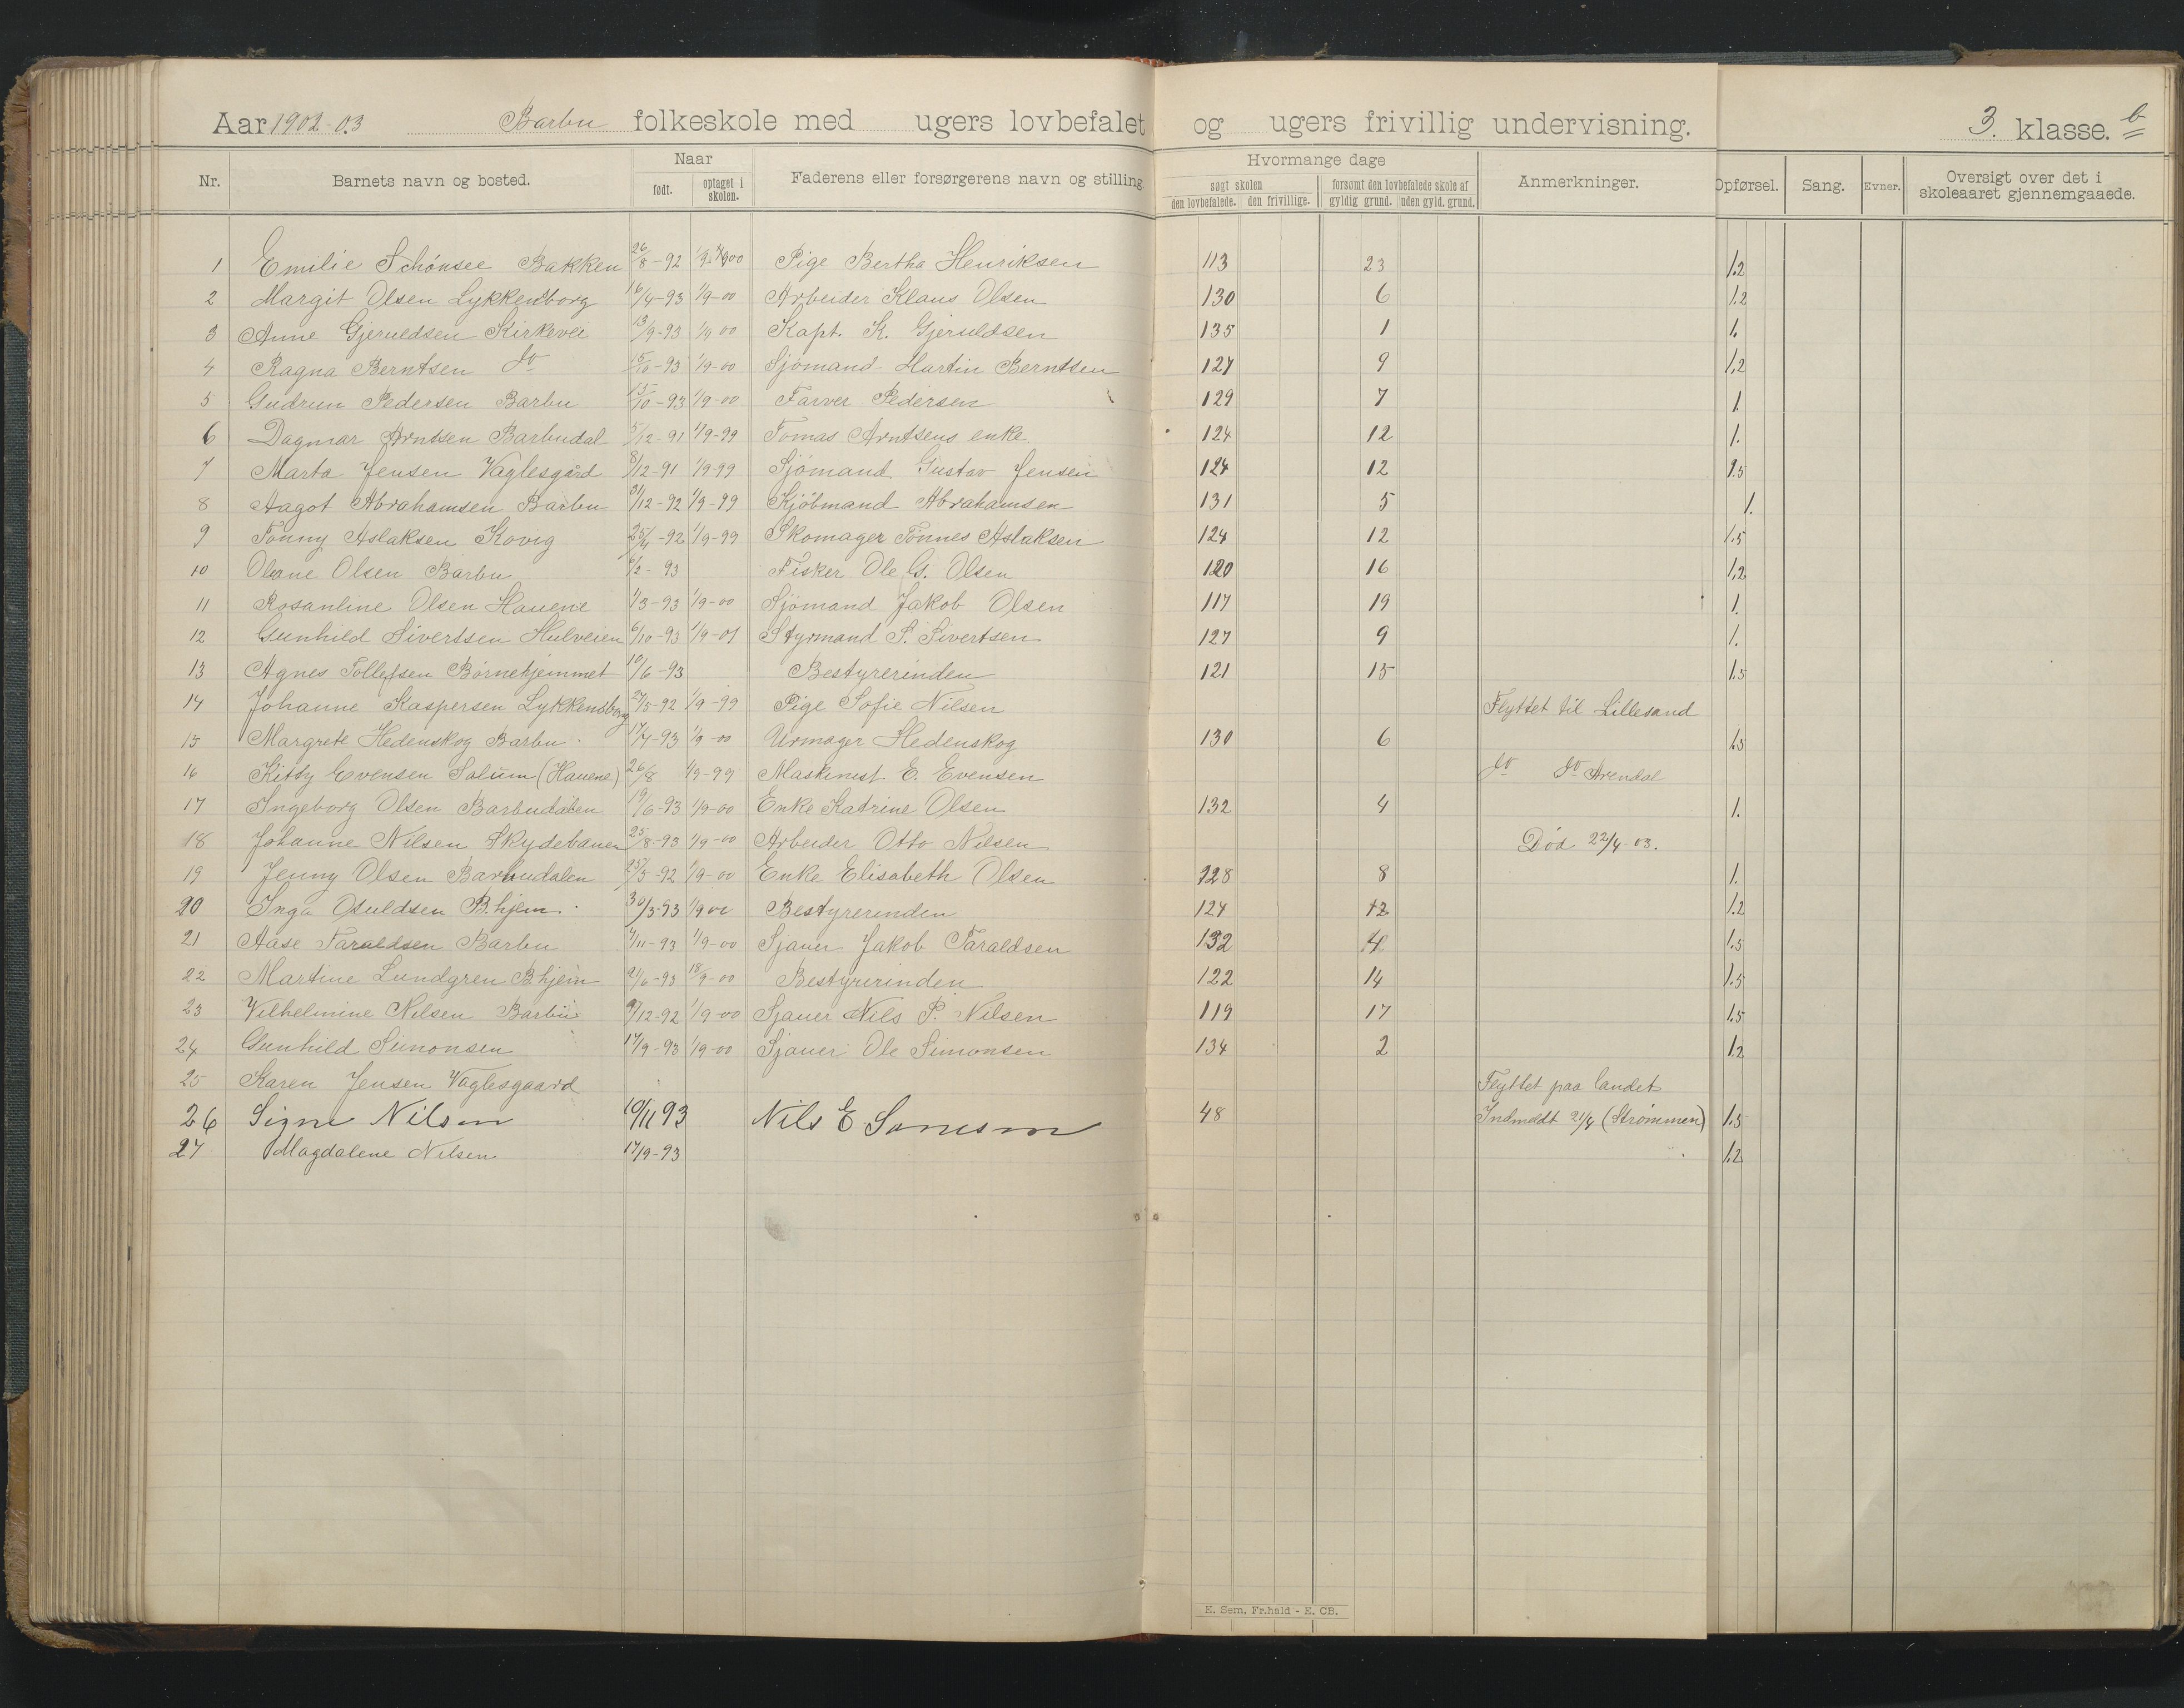 Aar 1902-03 Barbu folkeskole med ugers lovbefalet og ugers frivillig undervisning. 3. klasse. b
Nr. Barnets navn og bosted. Naar født. optaget i skolen. Faderens eller forsørgerens navn og stilling. Hvormange dage søgt skolen den lovbefalede. den frivillige. forsømt den lovbefalede skole af gyldig grund. uden gyld. grund. Anmerkninger. Opførsel. Sang. Evner. Oversigt over det i skoleaaret gjennemgaaede.
1 Emilie Schönsee Bakken 26/8-92 Pige Bertha Henriksen 113 23 1.2
2 Margit Olsen Lykkensborg 16/4-93 1/9-00 Arbeider Klaus Olsen 130 6 1.2
3 Anne Gjeruldsen Kirkevei 13/9-93 1/9 00 Kapt. K. Gjeruldsen 135 1 1.
4 Ragna Berntsen do 15/10-93 1/9-00 Sjømand Martin Berntsen 127 9 1,2
5 Gudrun Pedersen Barbu 15/10-93 1/9-00 Farver Pedersen 129 7 1
6 Dagmar Arntsen Barbudal 5/12-91 1/9-99 Tomas Arntsens enke 124 12 1.
7 Marta Jensen Vaglesgård 8/12-91 1/9-99 Sjömand Gustav Jensen 124 12 1.5
8 Aagot Abrahamsen Barbu 31/12-92 1/9-99 Kjöbmand Abrahamsen 131 5 1.
9 Tönny Aslaksen Kovig 25/4-92 1/9-99 Skomager Tönnes Aslaksen 124 12 1.5
10 Olane Olsen Barbu 6/2-93 Fisker Ole G. Olsen 120 16 1,2
11 Rosanline Olsen Hauene 1/3-93 1/9-00 Sjömand Jakob Olsen 117 19 1.
12 Gunhild Sivertsen Hulveien 6/10-93 1/9-01 Styrmand S. Sivertsen 127 9 1.
13 Agnes Tollefsen Börnehjemmet 10/6-93 Bestyrerinden 121 15 1.5
14 Johanne Kaspersen Lykkensborg 27/5-92 1/9-99 Pige Sofie Nilsen Flyttet til Lillesand
15 Margrete Hedenskog Barbu 17/4-93 1/9-00 Urmager Hedenskog 130 6 1.5
16 Kitty Evensen Solum (Hauene) 26/8 1/9-99 Maskinist E. Evensen do do Arendal
17 Ingeborg Olsen Barbudalen 19/6-93 1/9-00 Enke Katrine Olsen 132 4 1.
18 Johanne Nilsen Skydebanen 25/8-93 1/9-00 Arbeider Otto Nilsen Död 22/4-03.
19 Jenny Olsen Barbudalen 25/5-92 1/9-00 Enke Elisabeth Olsen 128 8 1.
20 Inga Osuldsen B.hjem 30/3-93 1/9 00 Bestyrerinden 124 12 1.2
21 Aase Taraldsen Barbu 4/11-93 1/9-00 Sjauer Jakob Taraldsen 132 4 1.5
22 Martine Lundgren B.hjem 21/6-93 18/9-00 Bestyrerinden 122 14 1.5
23 Vilhelmine Nilsen Barbu 9/12-92 1/9-00 Sjauer Nils P. Nilsen 119 17 1.5
24 Gunhild Simonsen 17/9-93 1/9-00 Sjauer Ole Simonsen 134 2 1.2
25 Karen Jensen Vaglesgaard Flyttet paa landet
26 Signe Nilsen 10/11 93 Nils E 48 Indmeldt 21/4 (Strømmen) 1.5
27 Magdalene Nilsen 17/9-93 1.2
E. Sem, Fr.hald - E. CB.